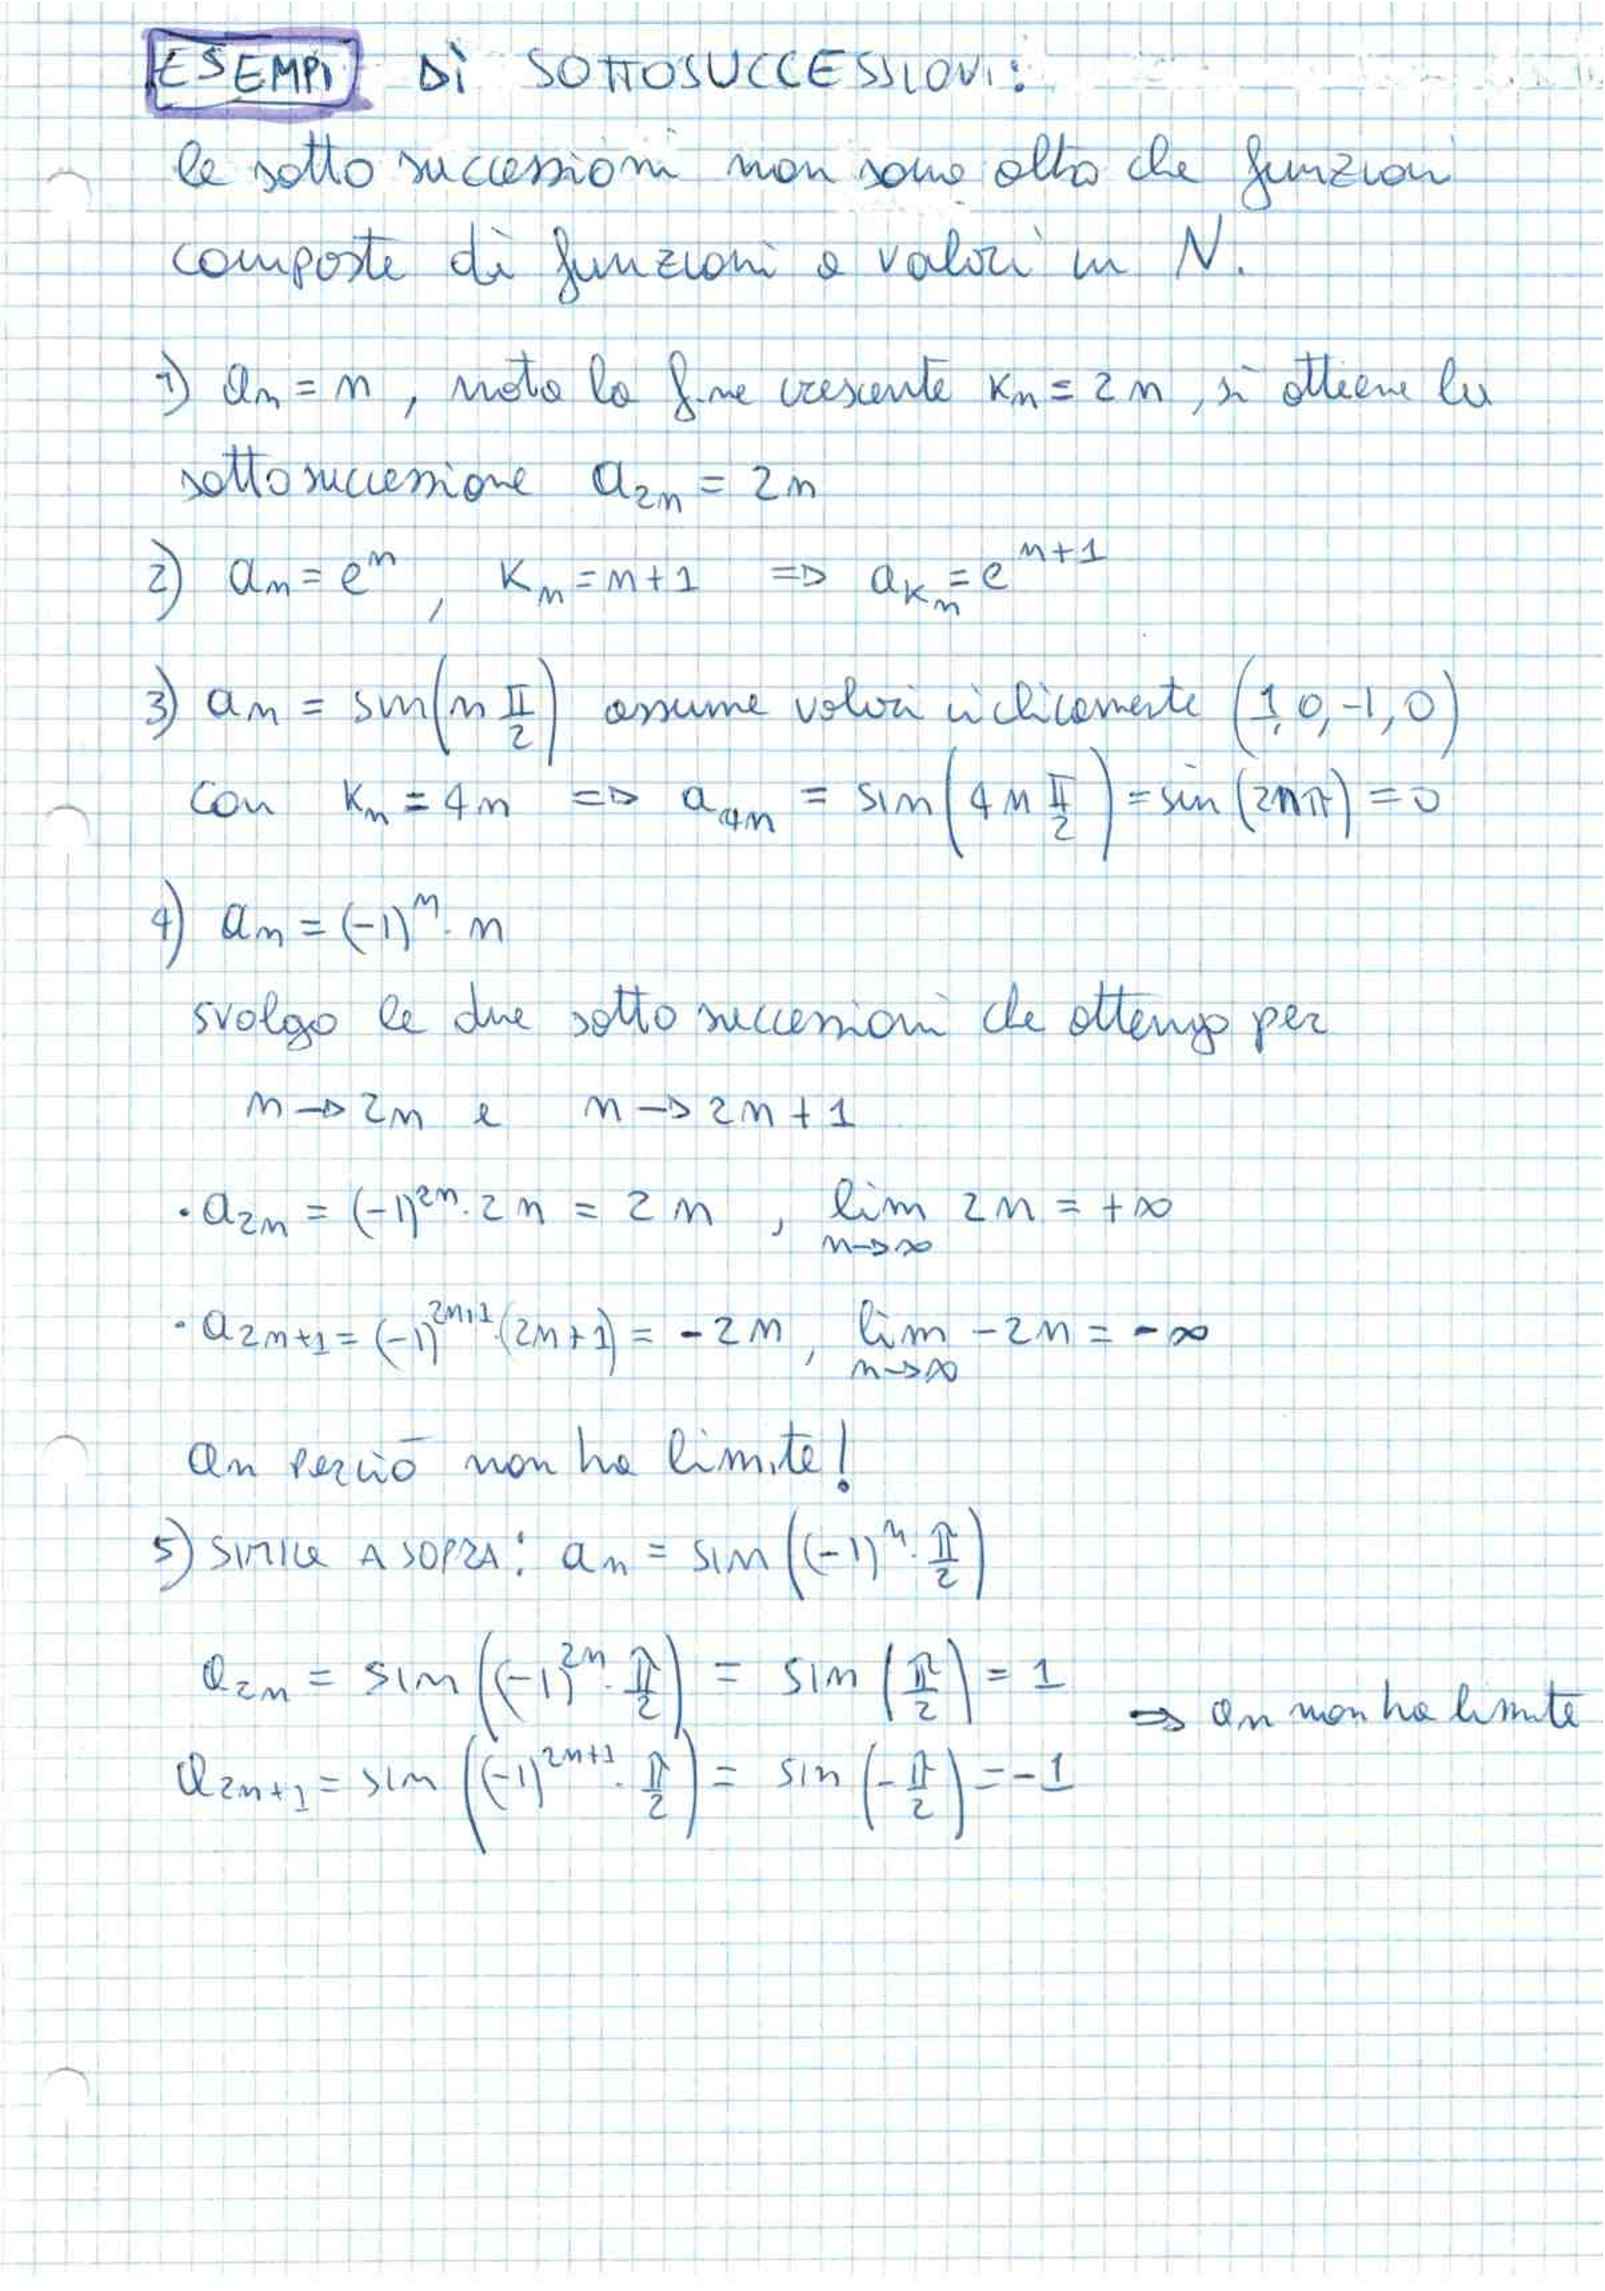 ESEMPI DÌ SOTTOSUCCESSIONI:
le sotto successioni non sono altro che funzioni
composte di funzioni a valori in N.
1) an = n , nota la f.ne crescente Kn = 2n , si ottiene la
sottosuccessione a2n = 2n
2) an = e^n , Kn = n+1 => aKn = e^(n+1)
3) an = sin(n π/2) assume valori ciclicamente (1,0,-1,0)
con Kn = 4n => a4n = sin(4n π/2) = sin(2nπ) = 0
4) an = (-1)^n · n
svolgo le due sotto successioni che ottengo per
n → 2n e n → 2n+1
· a2n = (-1)^2n · 2n = 2n , lim n→∞ 2n = +∞
· a2n+1 = (-1)^(2n+1) · (2n+1) = -2n , lim n→∞ -2n = -∞
an perciò non ha limite!
5) SIMILE A SOPRA: an = sin((-1)^n · π/2)
a2n = sin((-1)^2n · π/2) = sin(π/2) = 1
=> an non ha limite
a2n+1 = sin((-1)^(2n+1) · π/2) = sin(-π/2) = -1